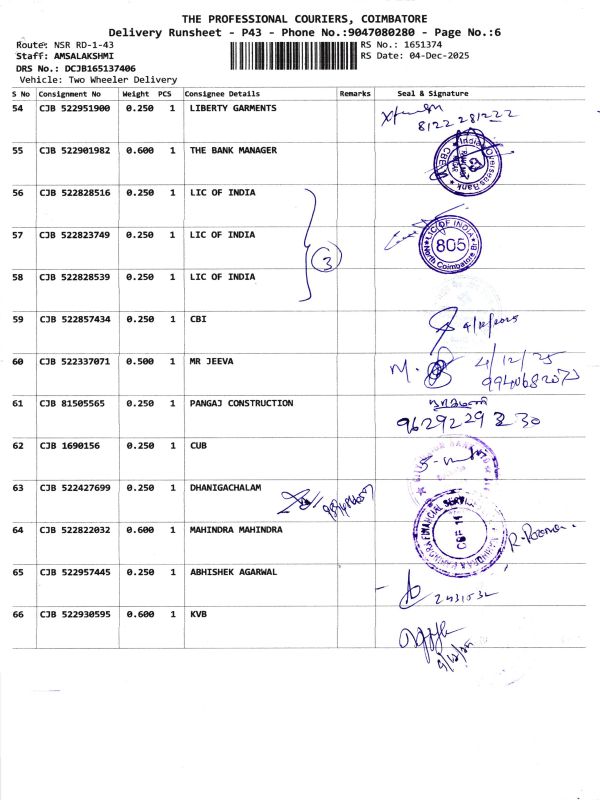 THE PROFESSIONAL COURIERS, COIMBATORE
Delivery Runsheet - P43 - Phone No.:9047080280 - Page No.:6
Route: NSR RD-1-43 RS No.: 1651374
Staff: AMSALAKSHMI RS Date: 04-Dec-2025
DRS No.: DCJB165137406
Vehicle: Two Wheeler Delivery
S No Consignment No Weight PCS Consignee Details Remarks Seal & Signature
54 CJB 522951900 0.250 1 LIBERTY GARMENTS
8122281222
55 CJB 522901982 0.600 1 THE BANK MANAGER
Indian Overseas Bank
56 CJB 522828516 0.250 1 LIC OF INDIA
57 CJB 522823749 0.250 1 LIC OF INDIA
3
LIC OF INDIA
805
North Coimbatore Br
58 CJB 522828539 0.250 1 LIC OF INDIA
59 CJB 522857434 0.250 1 CBI
4/12/2025
60 CJB 522337071 0.500 1 MR JEEVA
M.
4/12/25
61 CJB 81505565 0.250 1 PANGAJ CONSTRUCTION
62 CJB 1690156 0.250 1 CUB
63 CJB 522427699 0.250 1 DHANIGACHALAM
64 CJB 522822032 0.600 1 MAHINDRA MAHINDRA
65 CJB 522957445 0.250 1 ABHISHEK AGARWAL
66 CJB 522930595 0.600 1 KVB
4/12/25